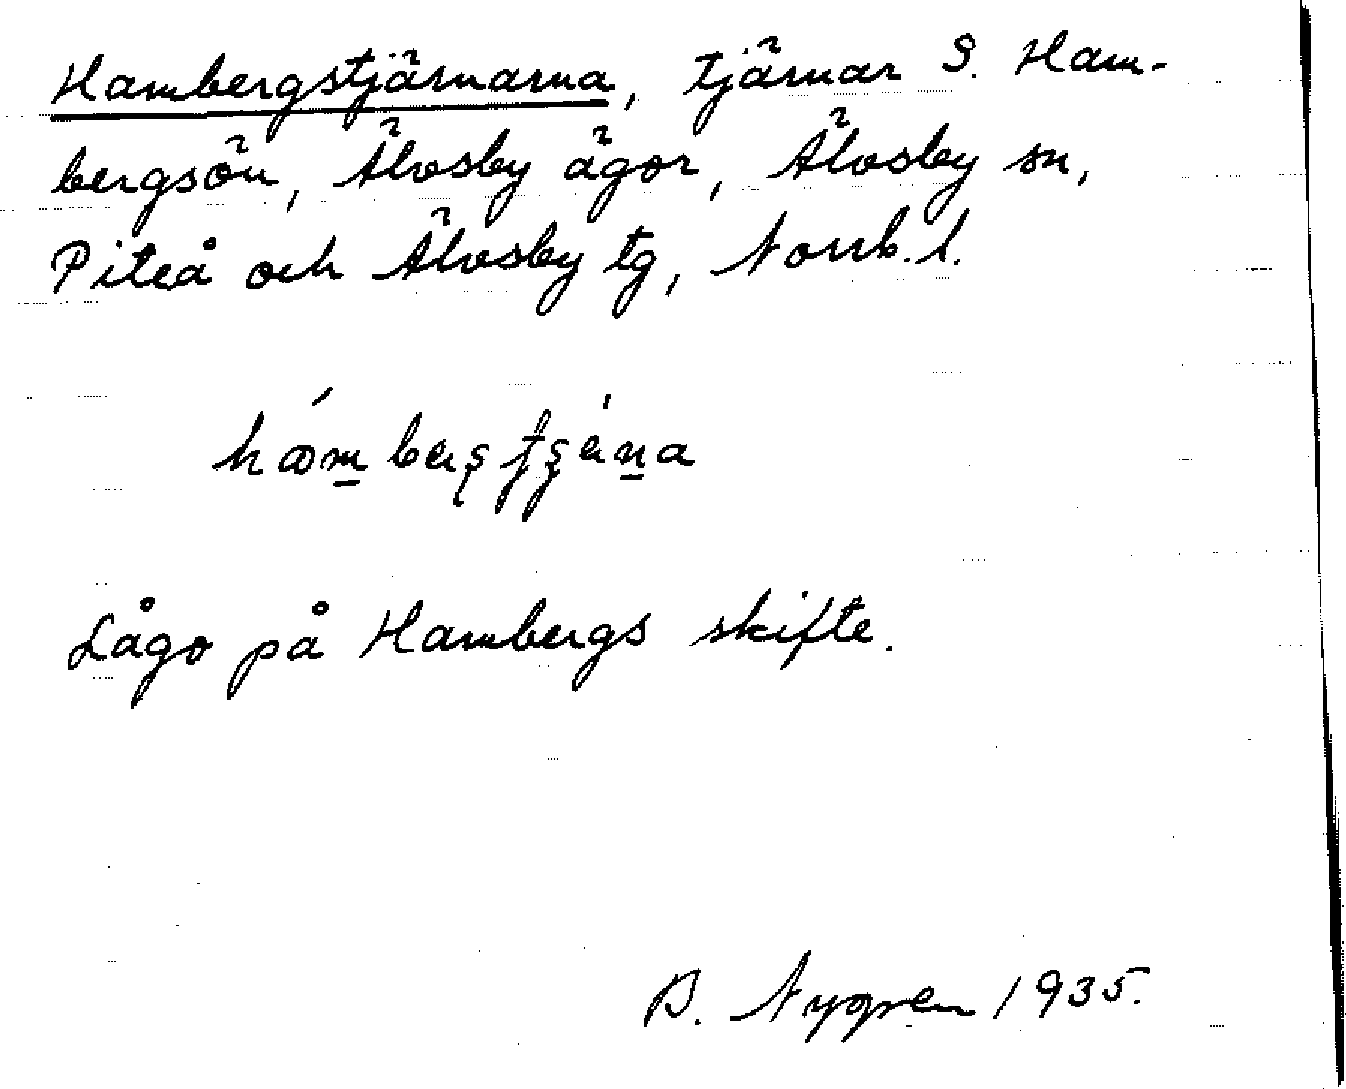 Hambergstjärnarna, tjärnar S. Ham-
bergsön, Älvsby ägor, Älvsby sn,
Piteå och Älvsby tg, Norrb. l.
Lågo på Hambergs skifte.
B. Nygren 1935.